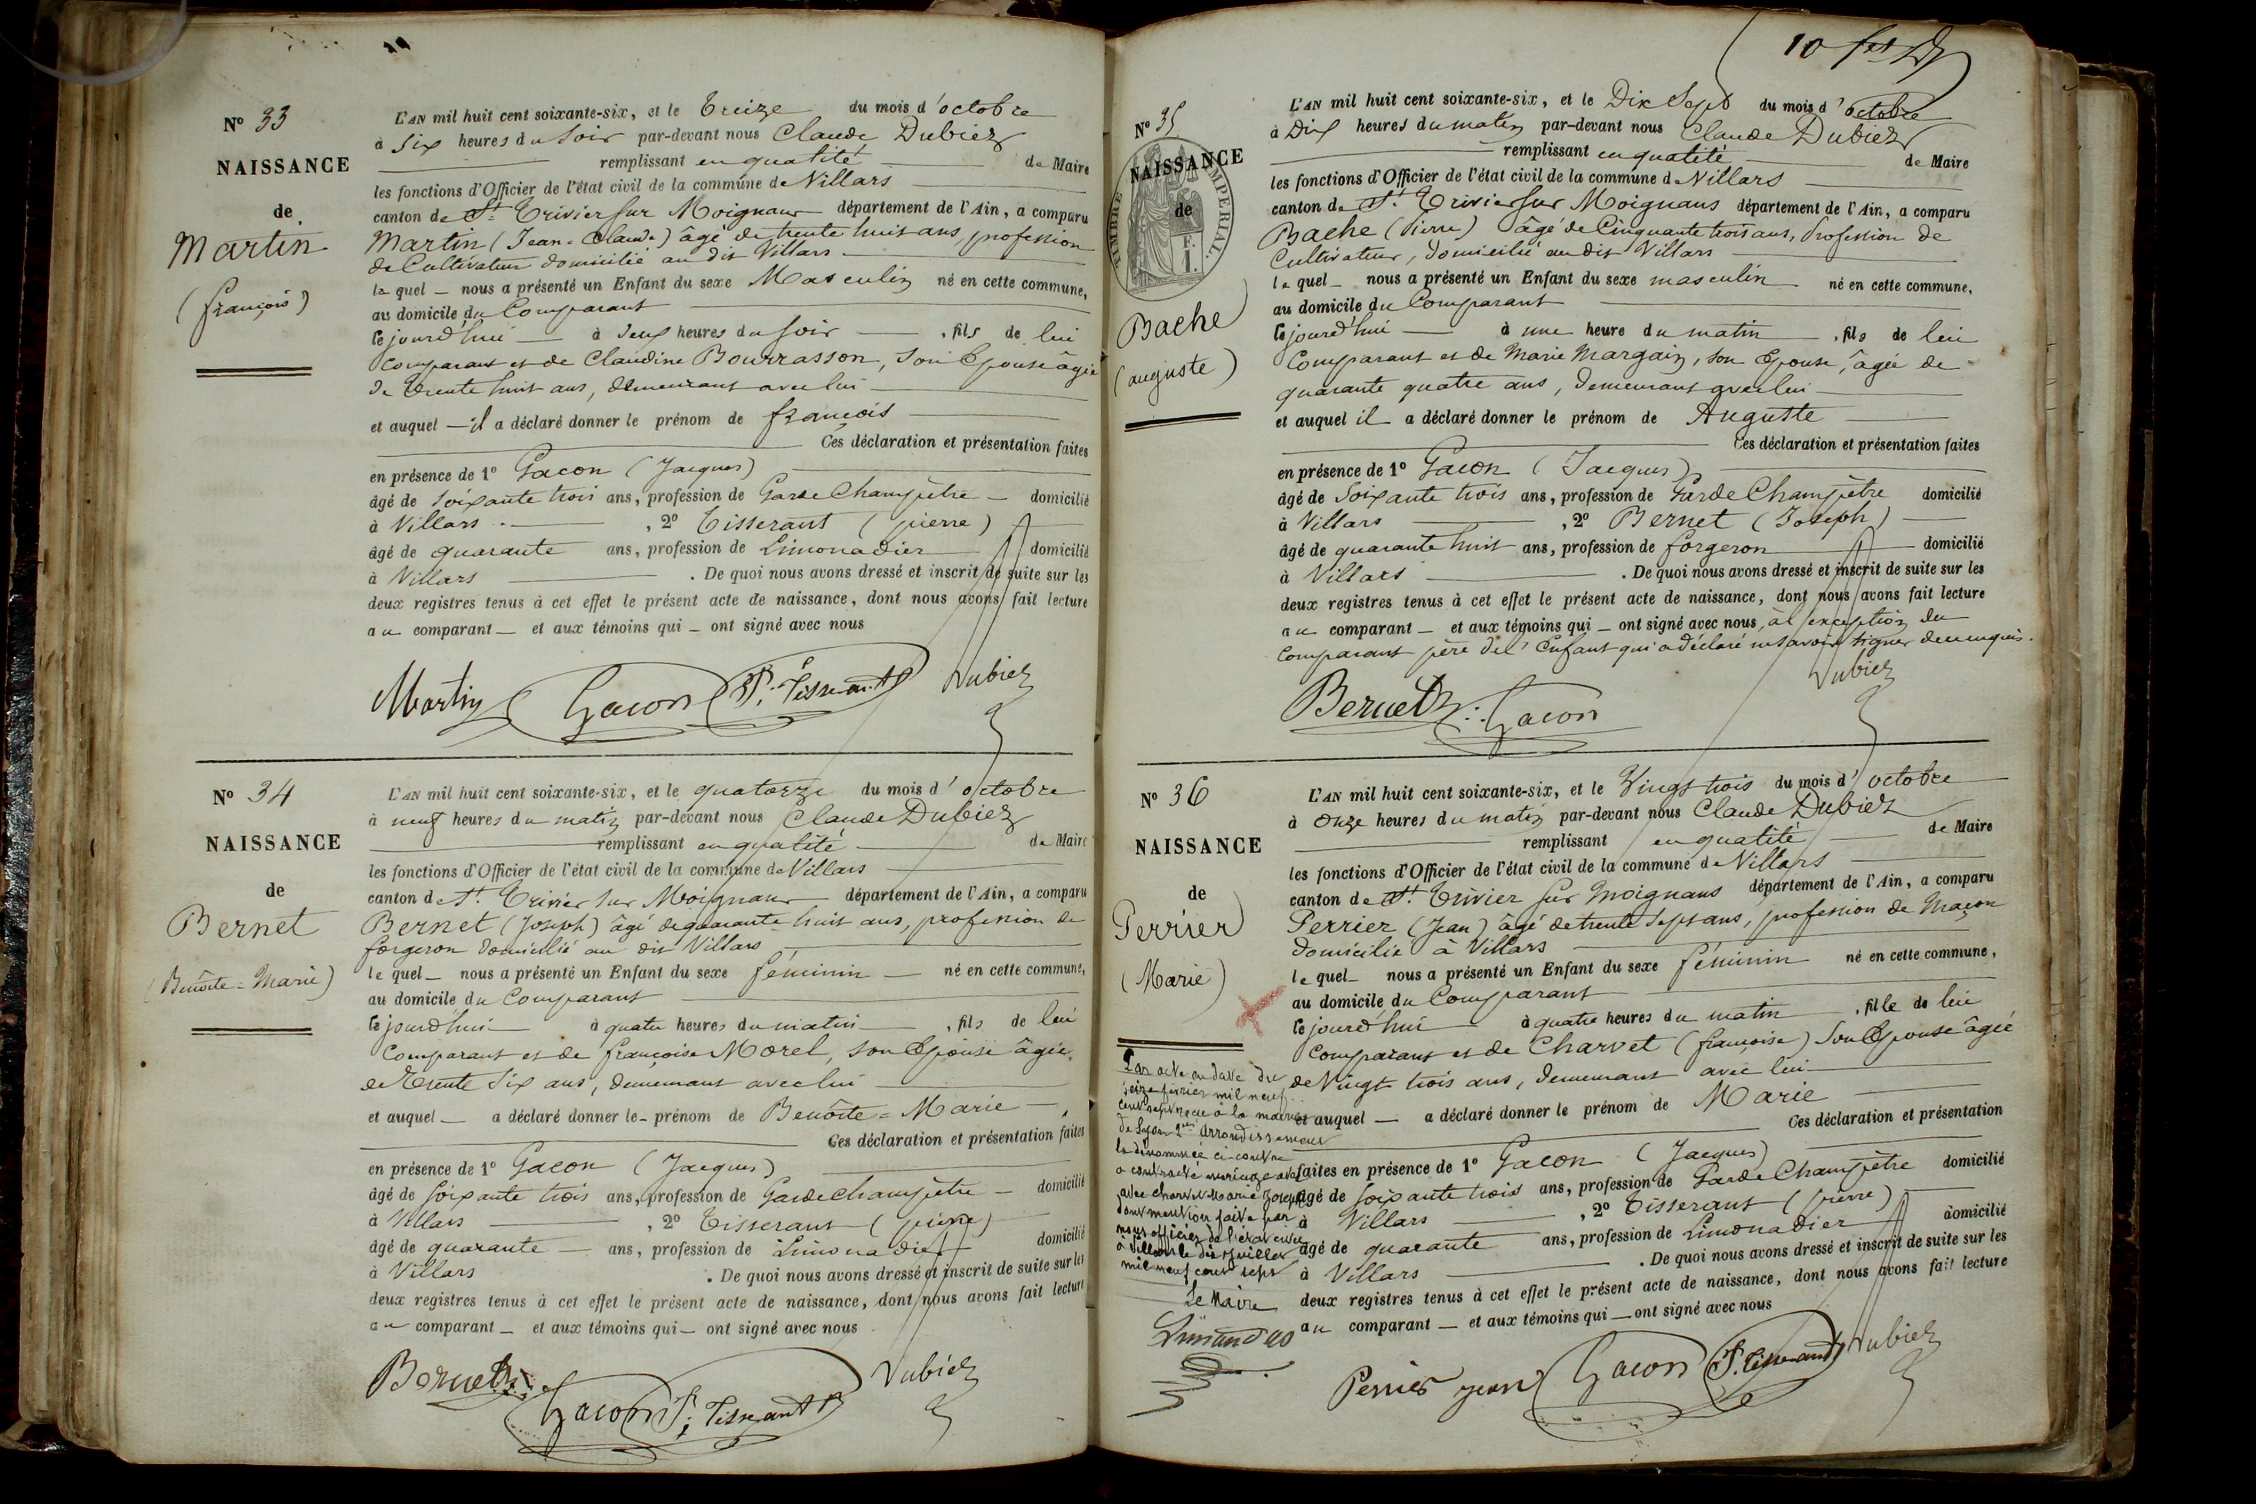 N° 33
NAISSANCE
de
Martin
(françois)
L'AN mil huit cent soixante-six, et le Treize du mois d'octobre
à Six heures du Soir par-devant nous Claude Dubiez
remplissant en qualité de Maire
les fonctions d'Officier de l'état civil de la commune de Villars
canton de St Trivier sur Moignans département de l'Ain, a comparu
Martin (Jean-Claude) âgé de trente huit ans, profession
de Cultivateur domicilié au dit Villars
lequel nous a présenté un Enfant du sexe Masculin né en cette commune,
au domicile du Comparant
Cejourd'hui à deux heures du Soir, fils de lui
Comparant et de Claudine Bourrasson, Son Epouse âgée
de Trente huit ans, demeurant avec lui
et auquel il a déclaré donner le prénom de françois
Ces déclaration et présentation faites
en présence de 1° Gacon (Jacques)
âgé de Soixante trois ans, profession de Garde Champêtre domicilié
à Villars, 2° Tisserant (pierre)
âgé de quarante ans, profession de Limonadier domicilié
à Villars. De quoi nous avons dressé et inscrit de suite sur les
deux registres tenus à cet effet le présent acte de naissance, dont nous avons fait lecture
au comparant et aux témoins qui ont signé avec nous
Martin Gacon P. Tisserant Dubiez
N° 34
NAISSANCE
de
Bernet
(Benoîte-Marie)
L'AN mil huit cent soixante-six, et le quatorze du mois d'octobre
à neuf heures du matin par-devant nous Claude Dubiez
remplissant en qualité de Maire
les fonctions d'Officier de l'état civil de la commune de Villars
canton de St Trivier sur Moignans département de l'Ain, a comparu
Bernet (Joseph) âgé de quarante huit ans, profession de
forgeron domicilié au dit Villars
lequel nous a présenté un Enfant du sexe féminin né en cette commune,
au domicile du Comparant
Cejourd'hui à quatre heures du matin, fils de lui
Comparant et de françoise Morel, son Epouse âgée
de Trente Six ans, demeurant avec lui
et auquel a déclaré donner le prénom de Benoîte-Marie
Ces déclaration et présentation faites
en présence de 1° Gacon (Jacques)
âgé de Soixante trois ans, profession de Garde champêtre domicilié
à Villars, 2° Tisserant (pierre)
âgé de quarante ans, profession de Limonadier domicilié
à Villars. De quoi nous avons dressé et inscrit de suite sur les
deux registres tenus à cet effet le présent acte de naissance, dont nous avons fait lecture
au comparant et aux témoins qui ont signé avec nous
Bernet Gacon P. Tisserant Dubiez
10
N° 35
NAISSANCE
de
TIMBRE IMPERIAL
Bache
(auguste)
L'AN mil huit cent soixante-six, et le Dix Sept du mois d'octobre
à Dix heures du matin par-devant nous Claude Dubiez
remplissant en qualité de Maire
les fonctions d'Officier de l'état civil de la commune de Villars
canton de St Trivier sur Moignans département de l'Ain, a comparu
Bache (Pierre) âgé de Cinquante trois ans, Profession de
Cultivateur, domicilié au dit Villars
lequel nous a présenté un Enfant du sexe masculin né en cette commune,
au domicile du Comparant
Cejourd'hui à une heure du matin, fils de lui
Comparant et de Marie Margain, son Epouse, âgée de
quarante quatre ans, demeurant avec lui
et auquel il a déclaré donner le prénom de Auguste
Ces déclaration et présentation faites
en présence de 1° Gacon (Jacques)
âgé de Soixante trois ans, profession de Garde Champêtre domicilié
à Villars, 2° Bernet (Joseph)
âgé de quarante huit ans, profession de forgeron domicilié
à Villars. De quoi nous avons dressé et inscrit de suite sur les
deux registres tenus à cet effet le présent acte de naissance, dont nous avons fait lecture
au comparant et aux témoins qui ont signé avec nous, à l'exception du
Comparant père de l'Enfant qui a déclaré ne savoir signer de ce requis.
Bernet Gacon Dubiez
N° 36
NAISSANCE
de
Perrier
(Marie)
Par acte en date du
seize février mil neuf
cent sept reçu à la mairie
de Lyon 2me Arrondissement
la dénommée ci-contre
a contracté mariage avec
Charvet Marie Joseph
dont mention faite par
nous officier de l'état civil
à Villars le dix Juillet
mil neuf cent sept
Le Maire
L'AN mil huit cent soixante-six, et le Vingt trois du mois d'octobre
à Onze heures du matin par-devant nous Claude Dubiez
remplissant en qualité de Maire
les fonctions d'Officier de l'état civil de la commune de Villars
canton de St Trivier sur Moignans département de l'Ain, a comparu
Perrier (Jean) âgé de trente Sept ans, profession de Maçon
Domicilié à Villars
lequel nous a présenté un Enfant du sexe féminin né en cette commune,
au domicile du Comparant
Cejourd'hui à quatre heures du matin, fille de lui
Comparant et de Charvet (françoise) Son Epouse âgée
de Vingt trois ans, demeurant avec lui
et auquel a déclaré donner le prénom de Marie
Ces déclaration et présentation
faites en présence de 1° Gacon (Jacques)
âgé de Soixante trois ans, profession de Garde Champêtre domicilié
à Villars, 2° Tisserant (pierre)
âgé de quarante ans, profession de Limonadier domicilié
à Villars. De quoi nous avons dressé et inscrit de suite sur les
deux registres tenus à cet effet le présent acte de naissance, dont nous avons fait lecture
au comparant et aux témoins qui ont signé avec nous
Perrier jean Gacon P. Tisserant Dubiez